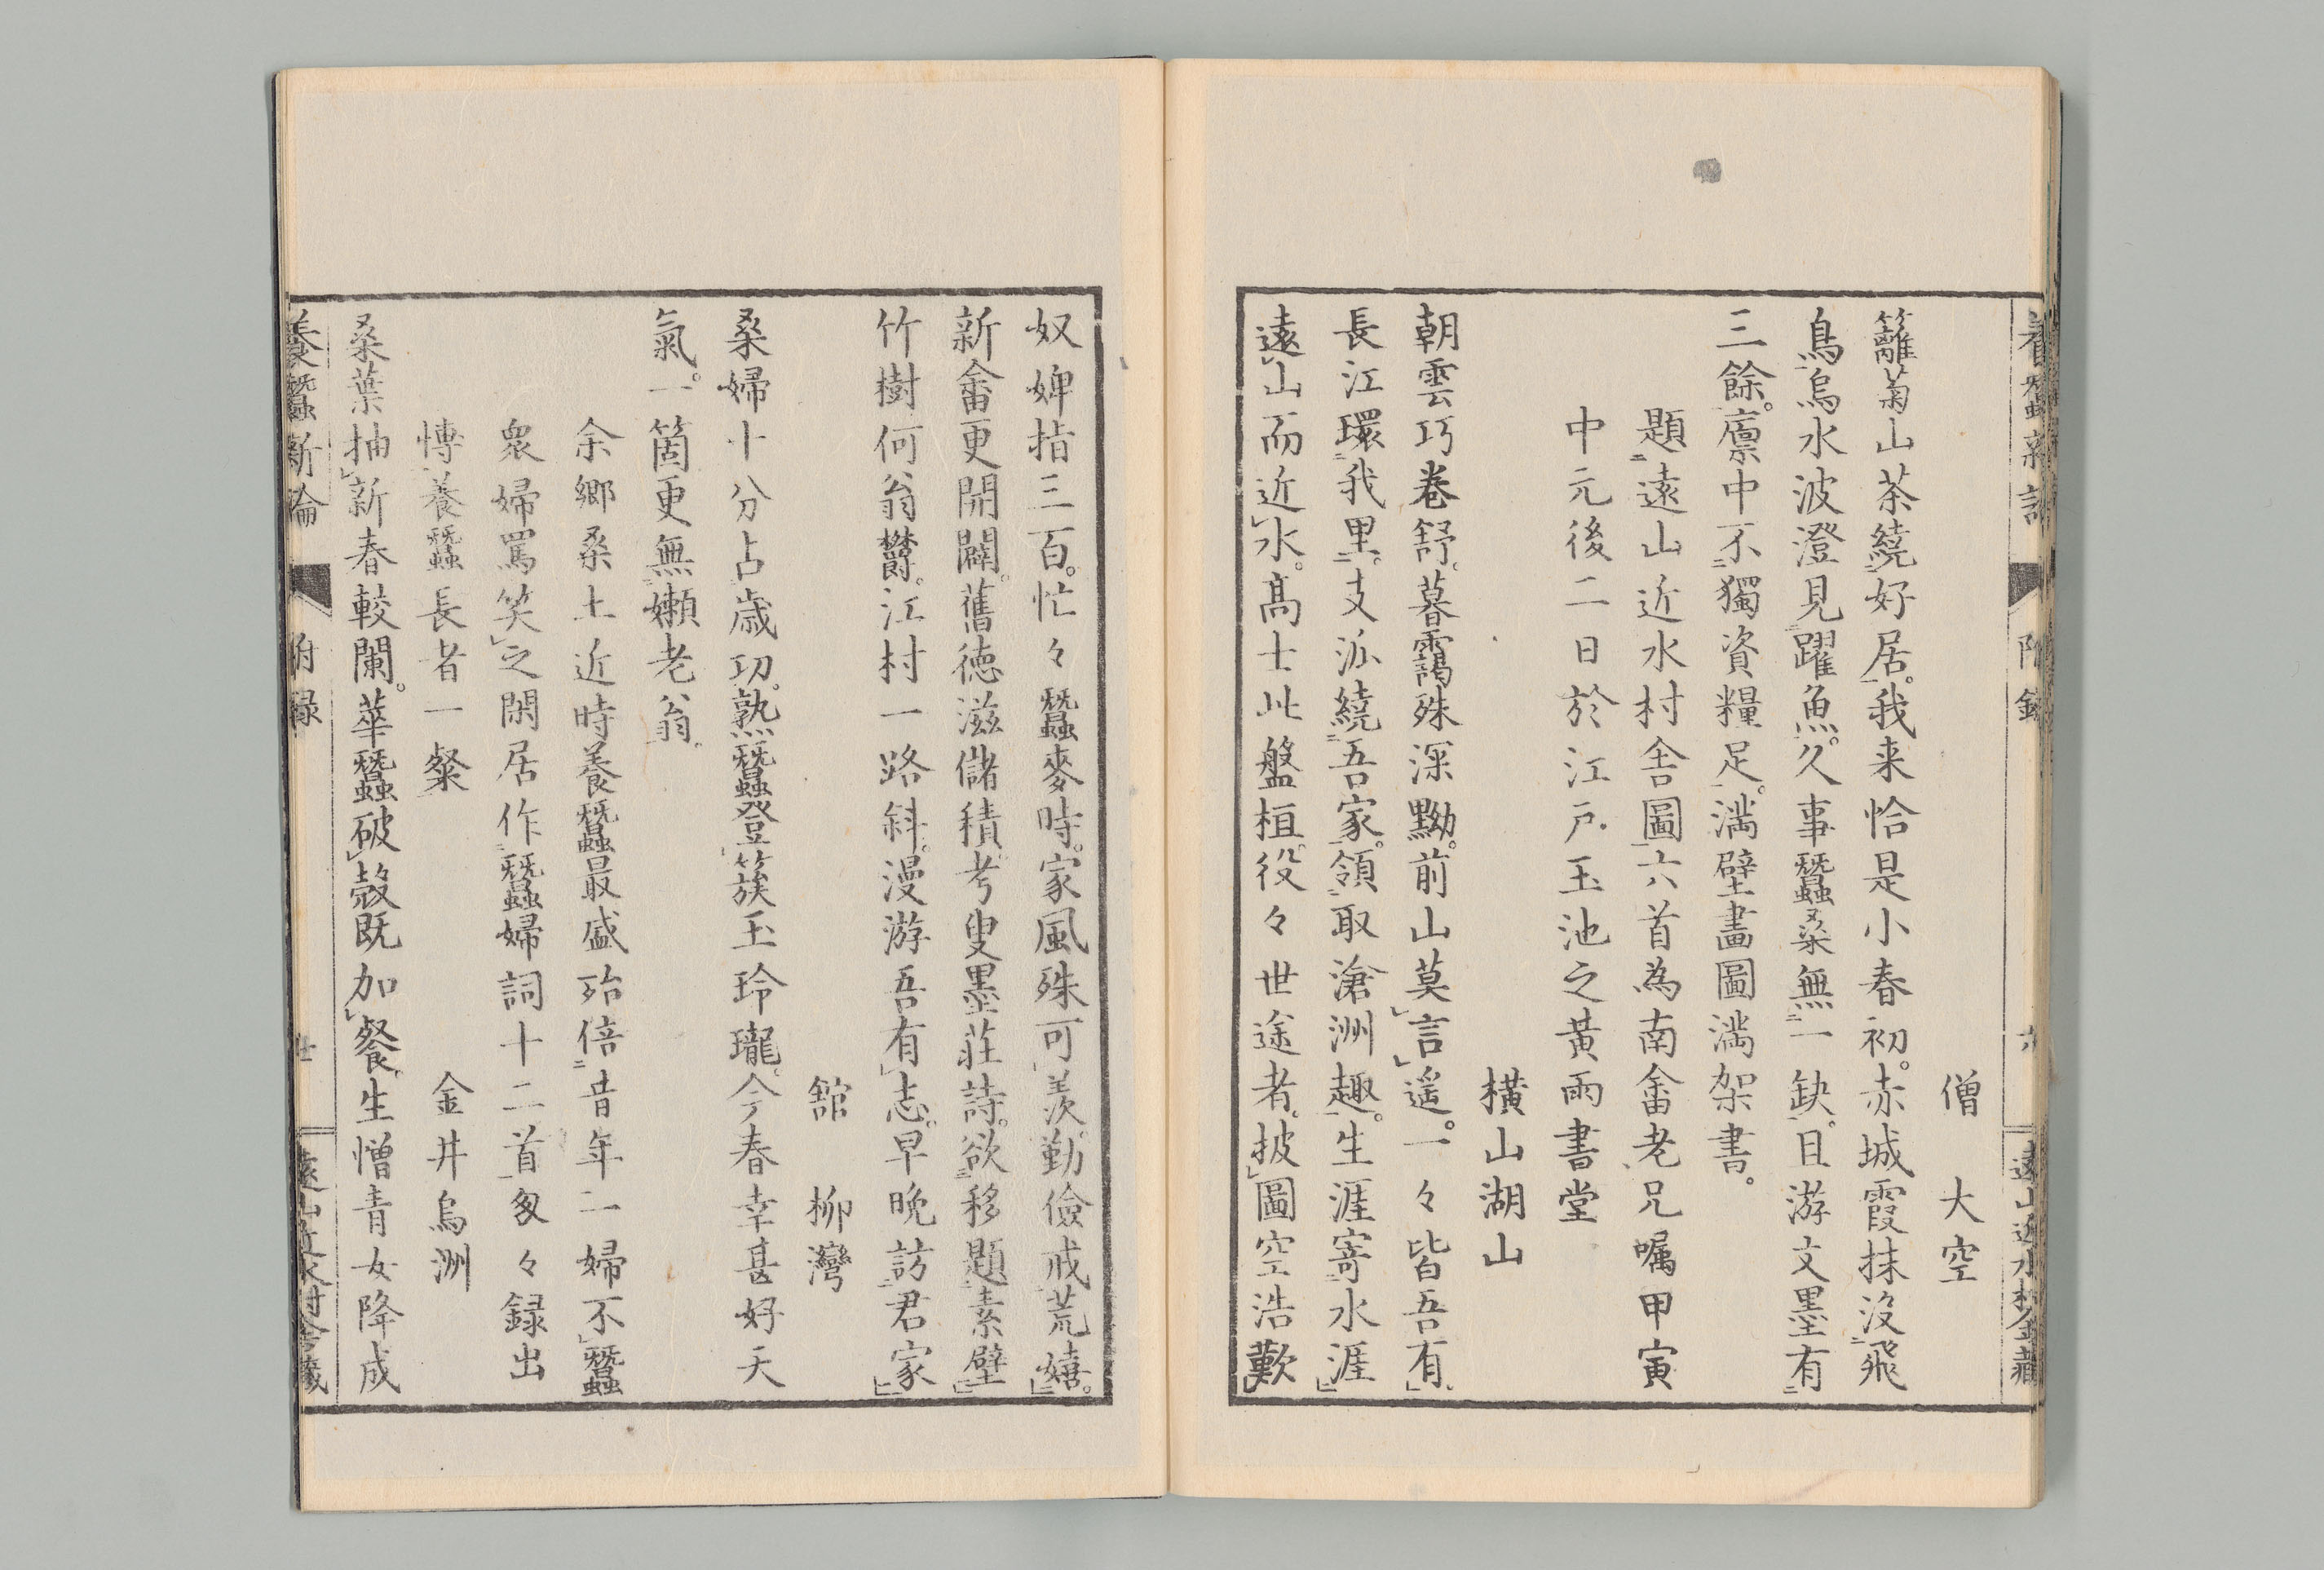 僧 大空
籬菊山茶繞好居。我来恰是小春初。赤城霞抹沒飛
鳥。烏水波澄見躍魚。久事蠶桑無一缺。且游文墨有
三餘。廩中不獨資糧足。満壁畫圖満架書。
題遠山近水村舎圖六首為南畬老兄嘱甲寅
中元後二日於江戸玉池之黃雨書堂
横山湖山
朝雲巧巻舒。暮靄殊深黝。前山莫言遥。一々皆吾有
長江環我里。支泒繞吾家。領取滄洲趣。生涯寄水涯
遠山而近水。髙士此盤桓。役々世途者。披圖空浩歎
奴婢指三百。忙々蠶麥時。家風殊可羨。勤儉戒荒嬉。
新畬更開闢。舊徳滋儲積。考叟墨荘詩。欲移題素壁
竹樹何翁欝。江村一路斜。漫游吾有志。早晩訪君家
舘 柳灣
桑婦十分占歳功。熟蠶登簇玉玲瓏。今春幸甚好天
氣。一箇更無嬾老翁。
余郷桑土近時養蠶最盛殆倍昔年二婦不蠶
衆婦罵笑之閑居作蠶婦詞十二首匆々録出
博養蠶長者一粲
金井烏洲
桑葉抽新春較闌。華蠶破殼既加餐。生憎青女降成
養蠶新論 附録 廿 遠山近水村舎蔵